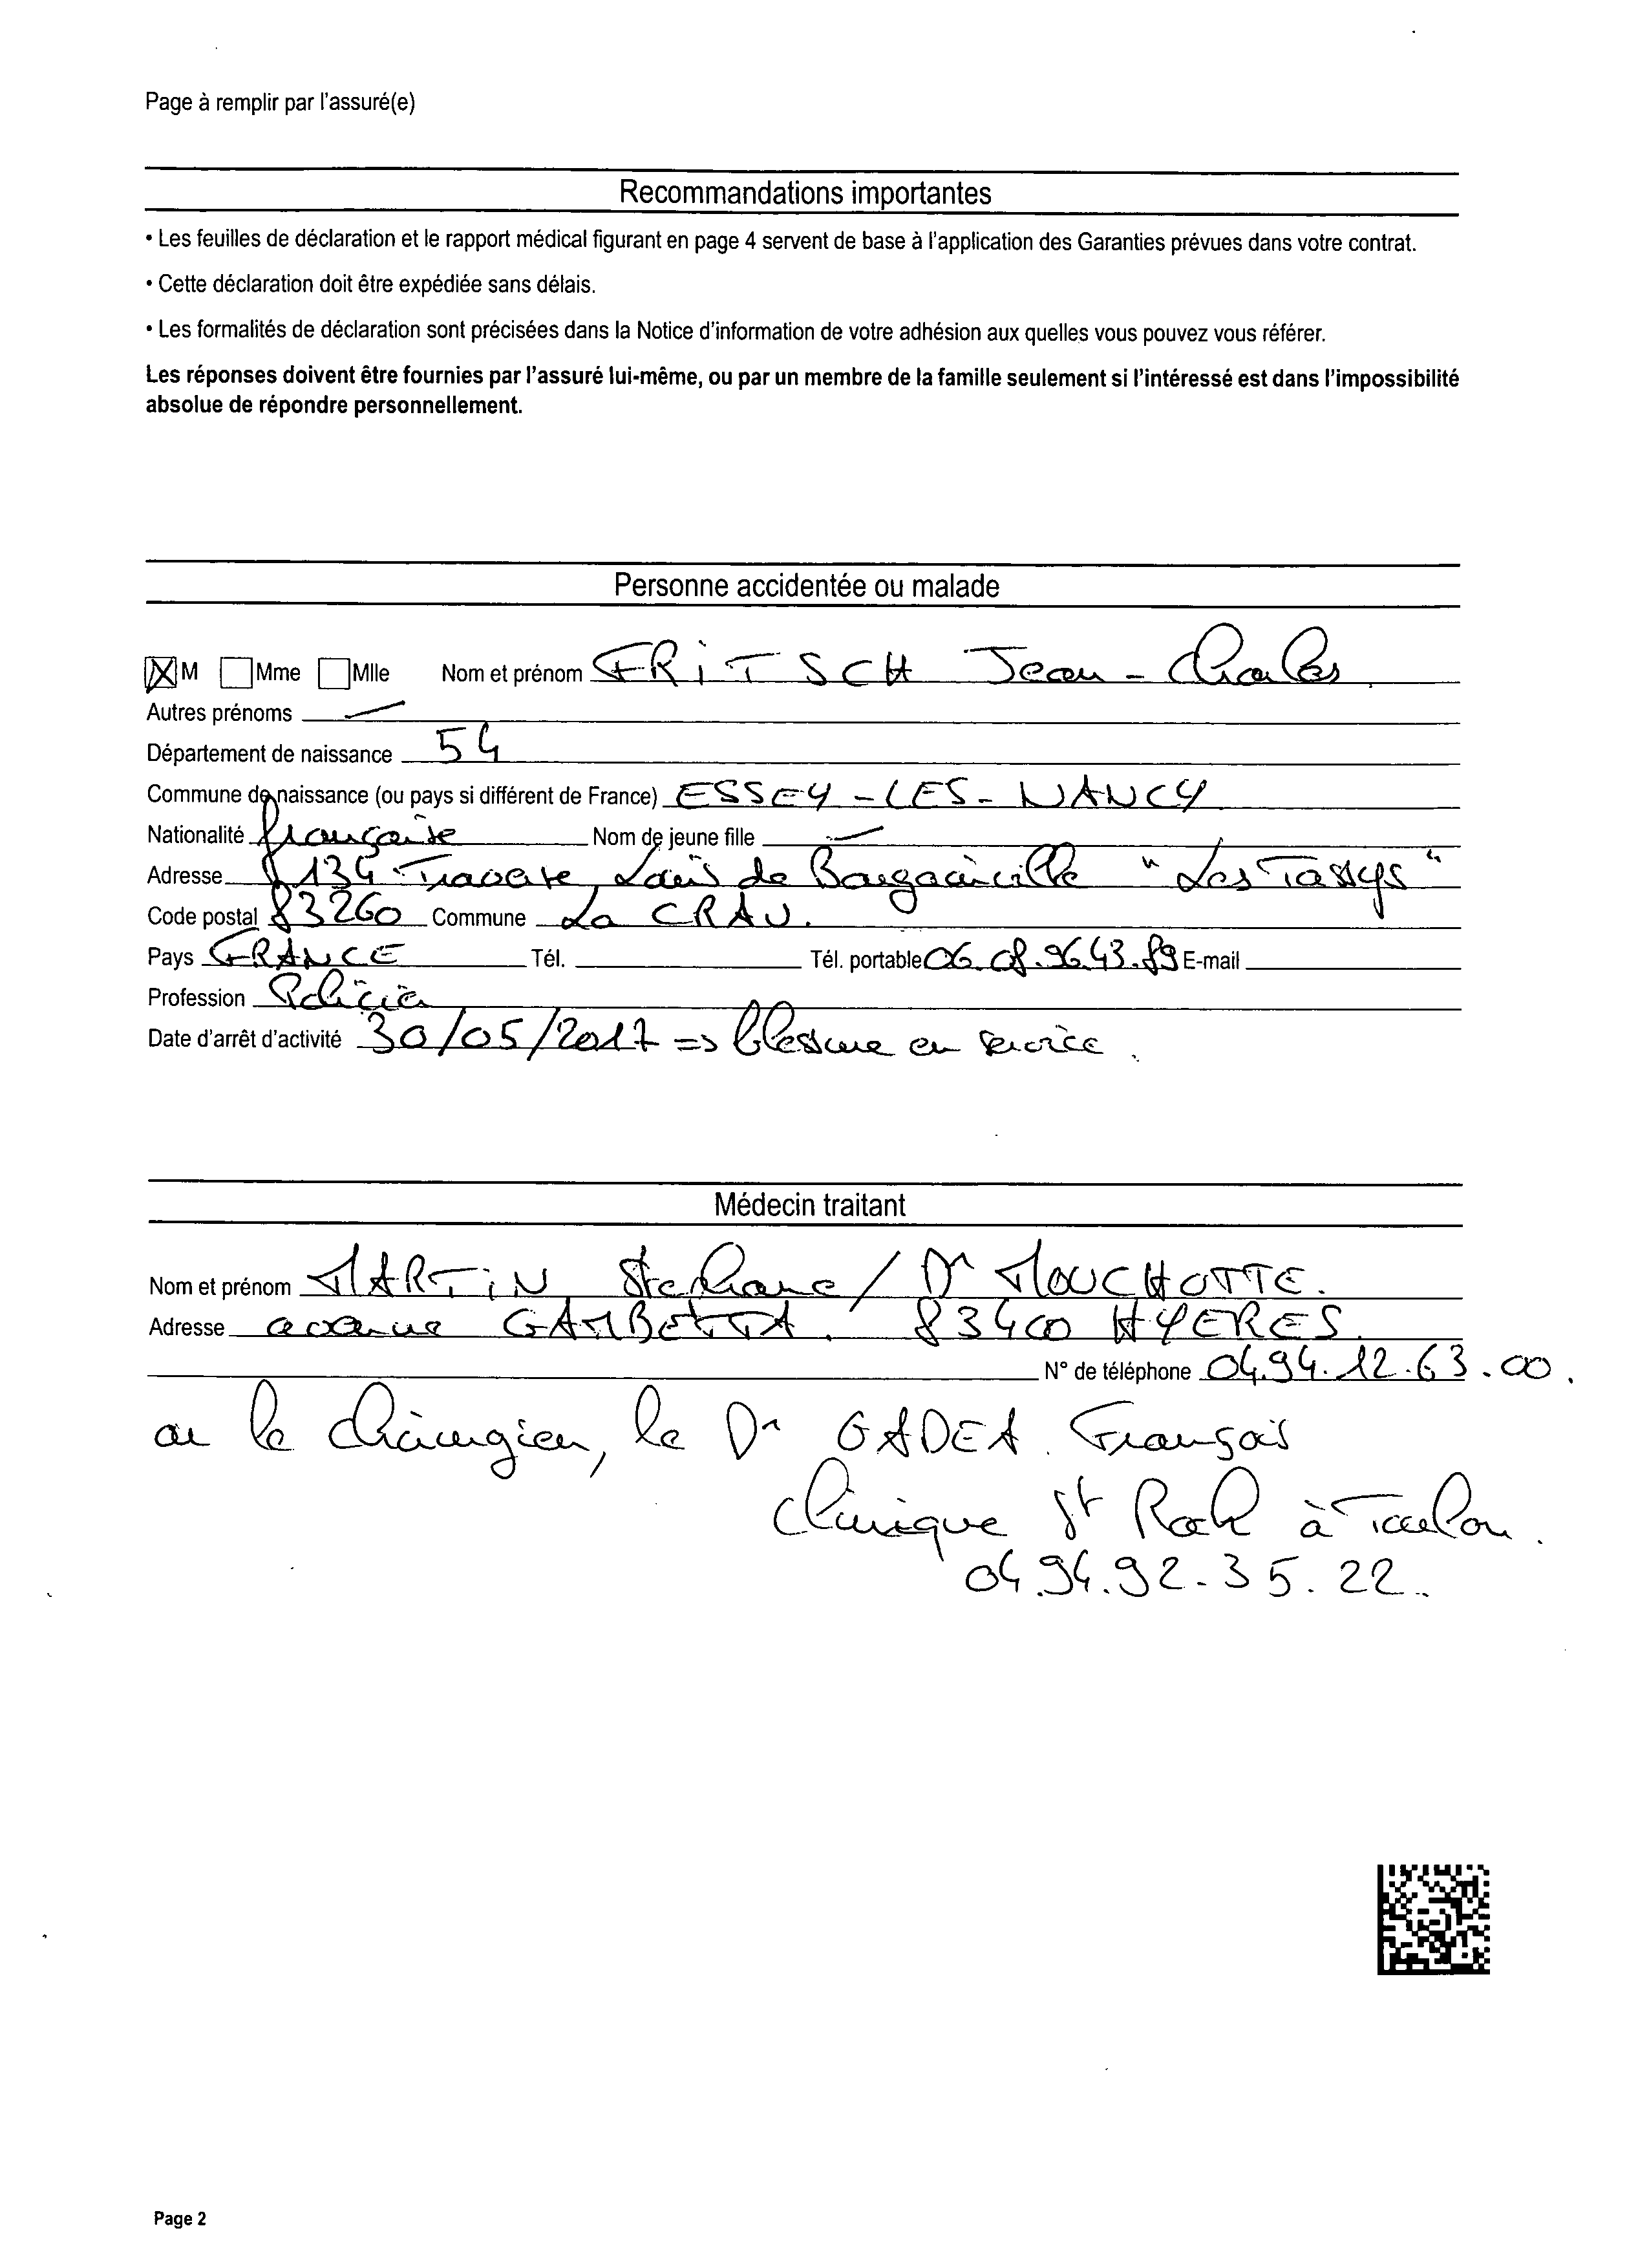 Page à remplir par l'assuré(e)
Recommandations importantes
• Les feuilles de déclaration et le rapport médical figurant en page 4 servent de base à l'application des Garanties prévues dans votre contrat.
• Cette déclaration doit être expédiée sans délais.
• Les formalités de déclaration sont précisées dans la Notice d'information de votre adhésion aux quelles vous pouvez vous référer.
Les réponses doivent être fournies par l'assuré lui-même, ou par un membre de la famille seulement si l'intéressé est dans l'impossibilité
absolue de répondre personnellement.
Personne accidentée ou malade
X M Mme Mlle Nom et prénom FRiTSCH Jean-Charles
Autres prénoms —
Département de naissance 54
Commune de naissance (ou pays si différent de France) ESSEY-LES-NANCY
Nationalité française Nom de jeune fille —
Adresse 134 Traverse Louis de Bougainville "Les Tassys"
Code postal 83260 Commune La CRAU.
Pays FRANCE Tél. Tél. portable 06.08.96.43.89 E-mail
Profession Policier
Date d'arrêt d'activité 30/05/2017 => blessure en service.
Médecin traitant
Nom et prénom MARTiN Stephane / Dr MOUCHOTTE.
Adresse avenue GAMBETTA. 83400 HYERES.
N° de téléphone 04.94.12.63.00.
ou le chirurgien, le Dr GADEA François
clinique St Roch à Toulon.
04.94.92.35.22.
Page 2